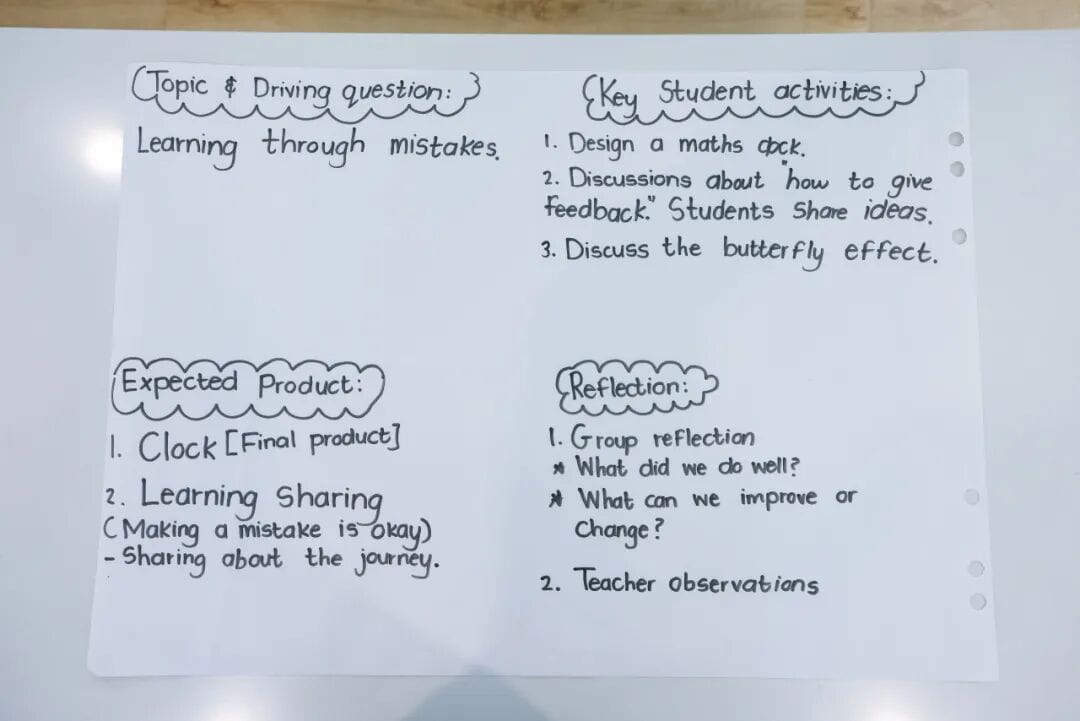 Topic & Driving question:
Learning through mistakes.
Key Student activities:
1. Design a maths clock.
2. Discussions about "how to give
feedback." Students share ideas.
3. Discuss the butterfly effect.
Expected Product:
1. Clock [Final product]
2. Learning Sharing
(Making a mistake is okay)
- Sharing about the journey.
Reflection:
1. Group reflection
* What did we do well?
* What can we improve or
change?
2. Teacher observations